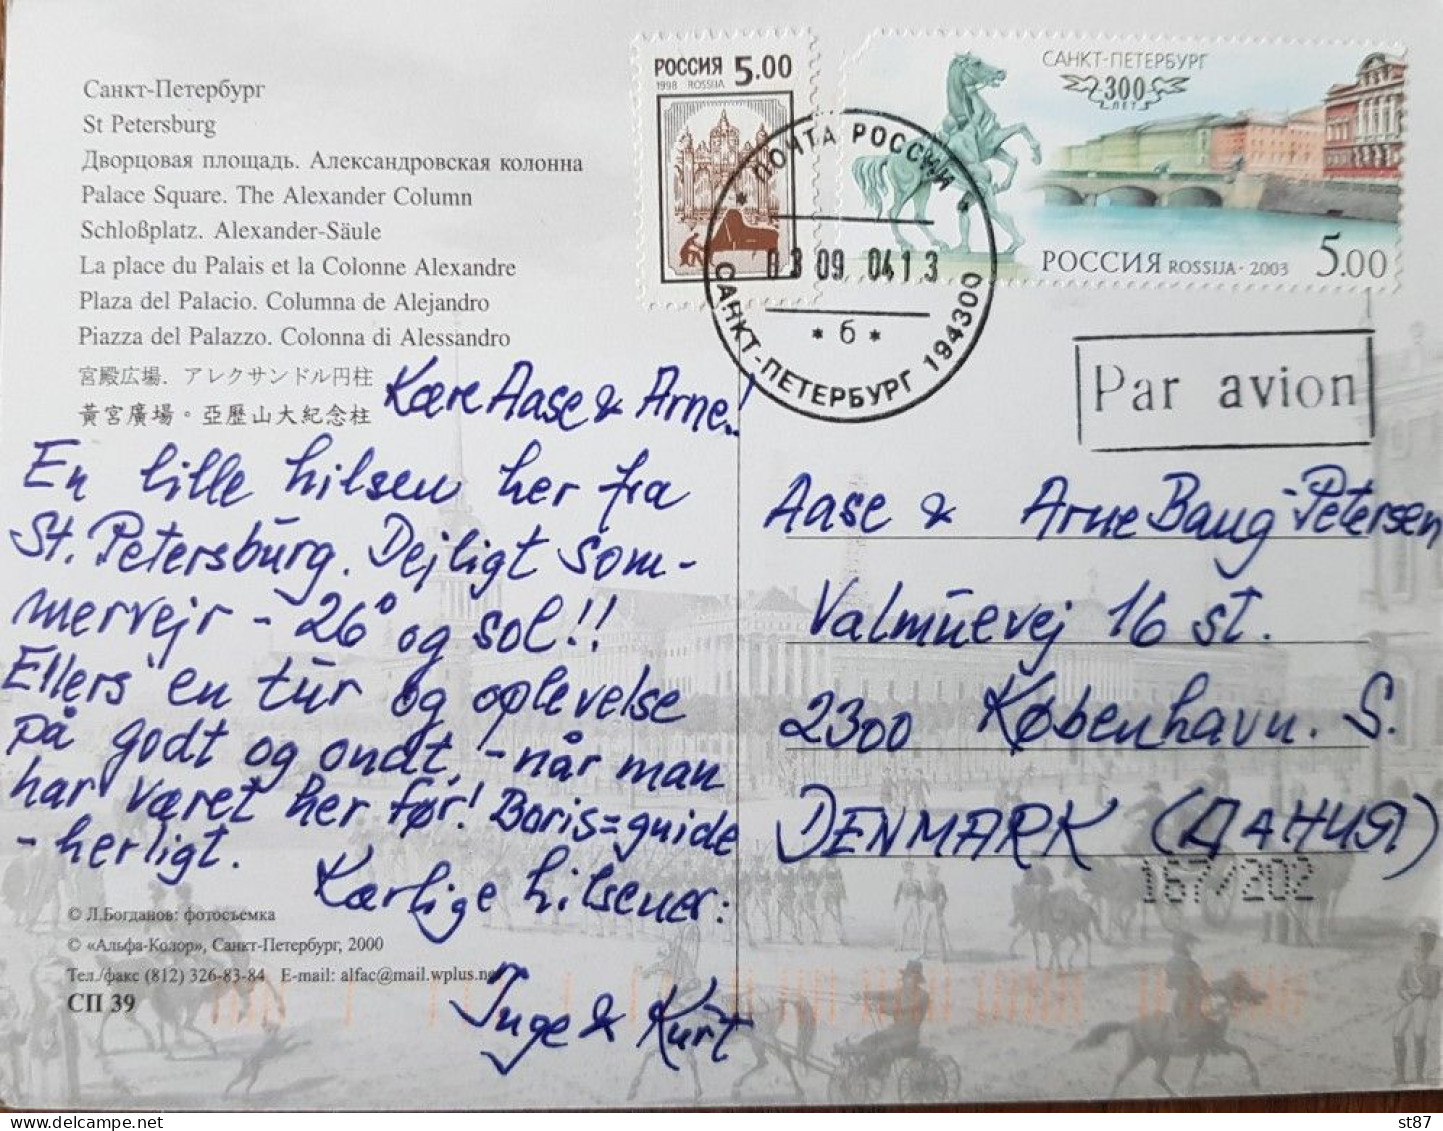 Санкт-Петербург
St Petersburg
Дворцовая площадь. Александровская колонна
Palace Square. The Alexander Column
Schloßplatz. Alexander-Säule
La place du Palais et la Colonne Alexandre
Plaza del Palacio. Columna de Alejandro
Piazza del Palazzo. Colonna di Alessandro
宮殿広場. アレクサンドル円柱
黃宮廣場。亞歷山大紀念柱
РОССИЯ 5.00
1998 ROSSIJA
САНКТ-ПЕТЕРБУРГ
300
ЛЕТ
РОССИЯ ROSSIJA · 2003 5.00
ПОЧТА РОССИИ
03 09 04 13
* б *
САНКТ-ПЕТЕРБУРГ 194300
Par avion
Kære Aase & Arne!
En lille hilsen her fra
St. Petersburg. Dejligt som-
mervejr - 26° og sol!!
Ellers en tur og oplevelse
på godt og ondt, - når man
har været her før! Boris=guide
- herligt.
Kærlige hilsener:
Inge & Kurt
Aase & Arne Baug-Petersen
Valmuevej 16 st.
2300 København. S.
DENMARK (ДАНИЯ)
167/202
© Л.Богданов: фотосъемка
© «Альфа-Колор», Санкт-Петербург, 2000
Тел./факс (812) 326-83-84 E-mail: alfac@mail.wplus.net
СП 39
st87